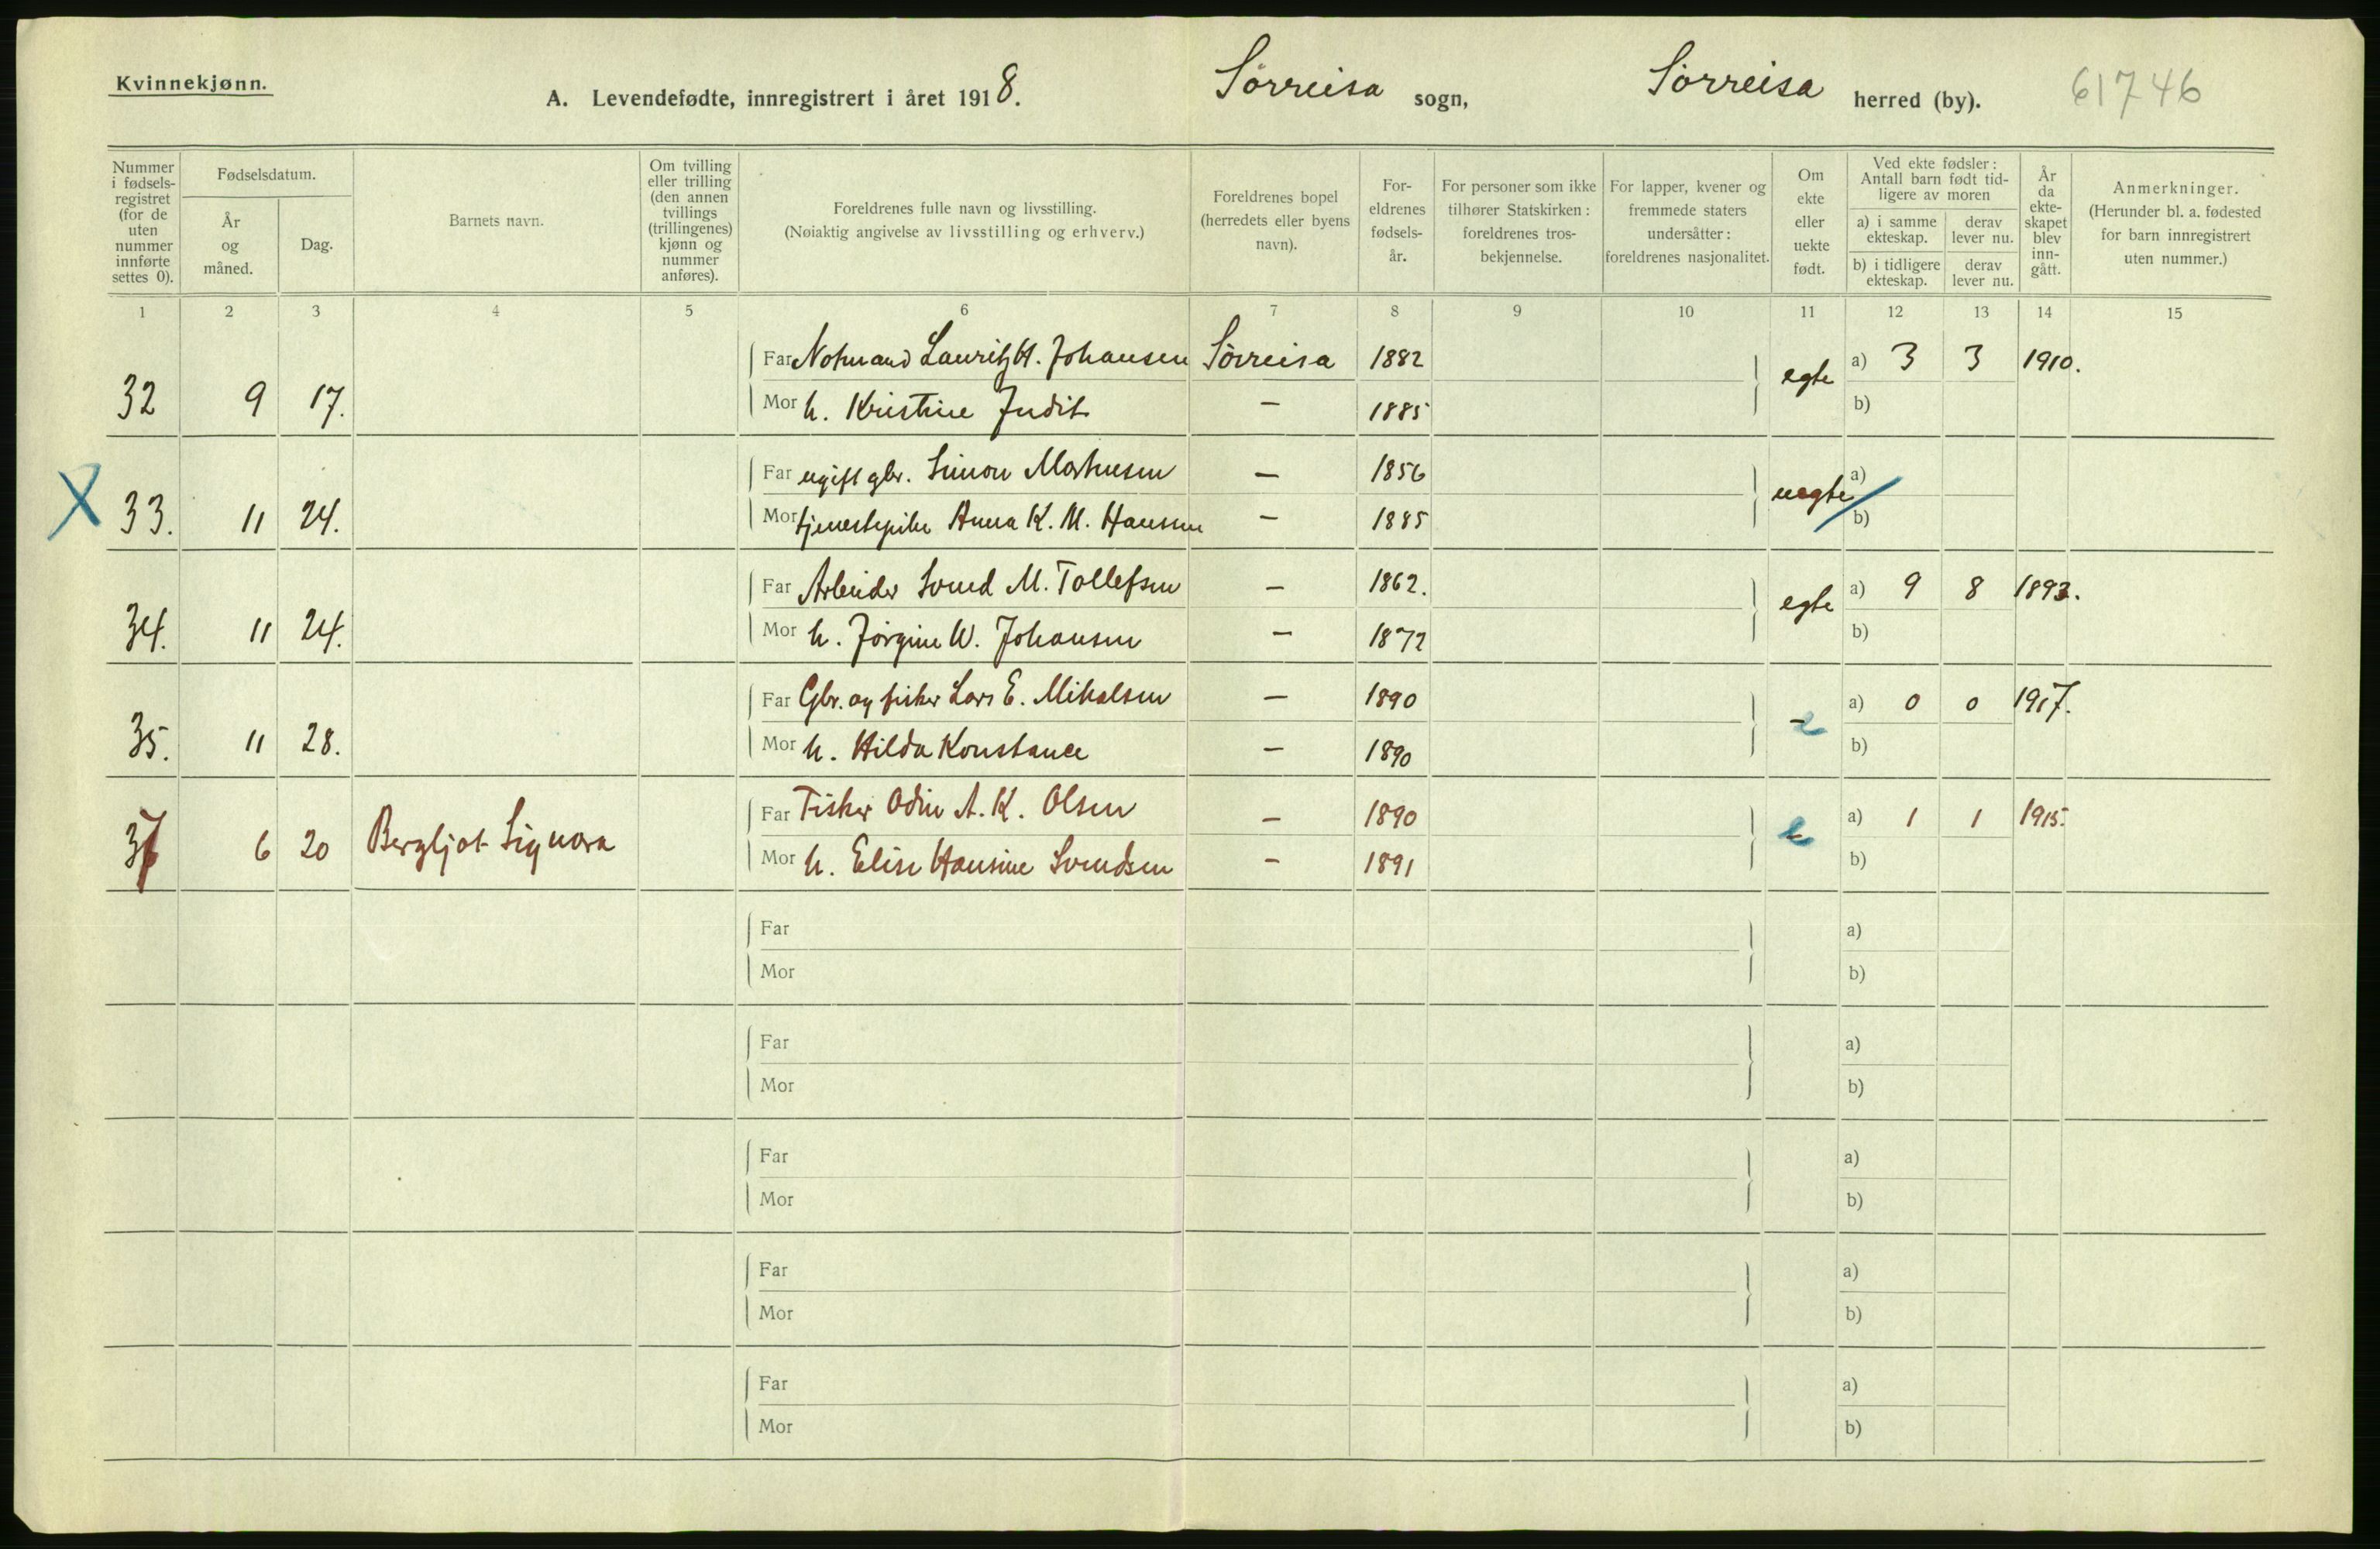 Kvinnekjønn.
A. Levendefødte, innregistrert i året 1918. Sørreisa sogn, Sørreisa herred (by). 61746
Nummer i fødselsregistret (for de uten nummer innførte settes 0).
Fødselsdatum.
År og måned.
Dag.
Barnets navn.
Om tvilling eller trilling (den annen tvillings (trillingenes) kjønn og nummer anføres).
Foreldrenes fulle navn og livsstilling.
(Nøiaktig angivelse av livsstilling og erhverv.)
Foreldrenes bopel (herredets eller byens navn).
Foreldrenes fødselsår.
For personer som ikke tilhører Statskirken: foreldrenes trosbekjennelse.
For lapper, kvener og fremmede staters undersåtter: foreldrenes nasjonalitet.
Om ekte eller uekte født.
Ved ekte fødsler: Antall barn født tidligere av moren
a) i samme ekteskap.
derav lever nu.
b) i tidligere ekteskap.
derav lever nu.
År da ekteskapet blev inngått.
Anmerkninger.
(Herunder bl. a. fødested for barn innregistrert uten nummer.)
1 2 3 4 5 6 7 8 9 10 11 12 13 14 15
Far Notmand Lauritz H. Johansen Sørreisa 1882 egte a) 3 3 1910.
32 9 17. Mor h. Kristine Judit — 1885 b)
Far ugift gbr. Simon Martinesen — 1856 uegte a)
X 33. 11 24. Mor tjenestepike Anna K. M. Hansen — 1885 b)
Far Arbeider Svend M. Tollefsen — 1862. egte a) 9 8 1893.
34. 11 24. Mor h. Jørgine W. Johansen — 1872 b)
Far Gbr. og fisker Lars E. Mikalsen — 1890 – e a) 0 0 1917.
35. 11 28. Mor h. Hilda Konstance — 1890 b)
Far Fisker Odin A. K. Olsen — 1890 e a) 1 1 1915.
37 6 20 Bergljot Signora Mor h. Elise Hansine Svendsen — 1891 b)
Far a)
Mor b)
Far a)
Mor b)
Far a)
Mor b)
Far a)
Mor b)
Far a)
Mor b)